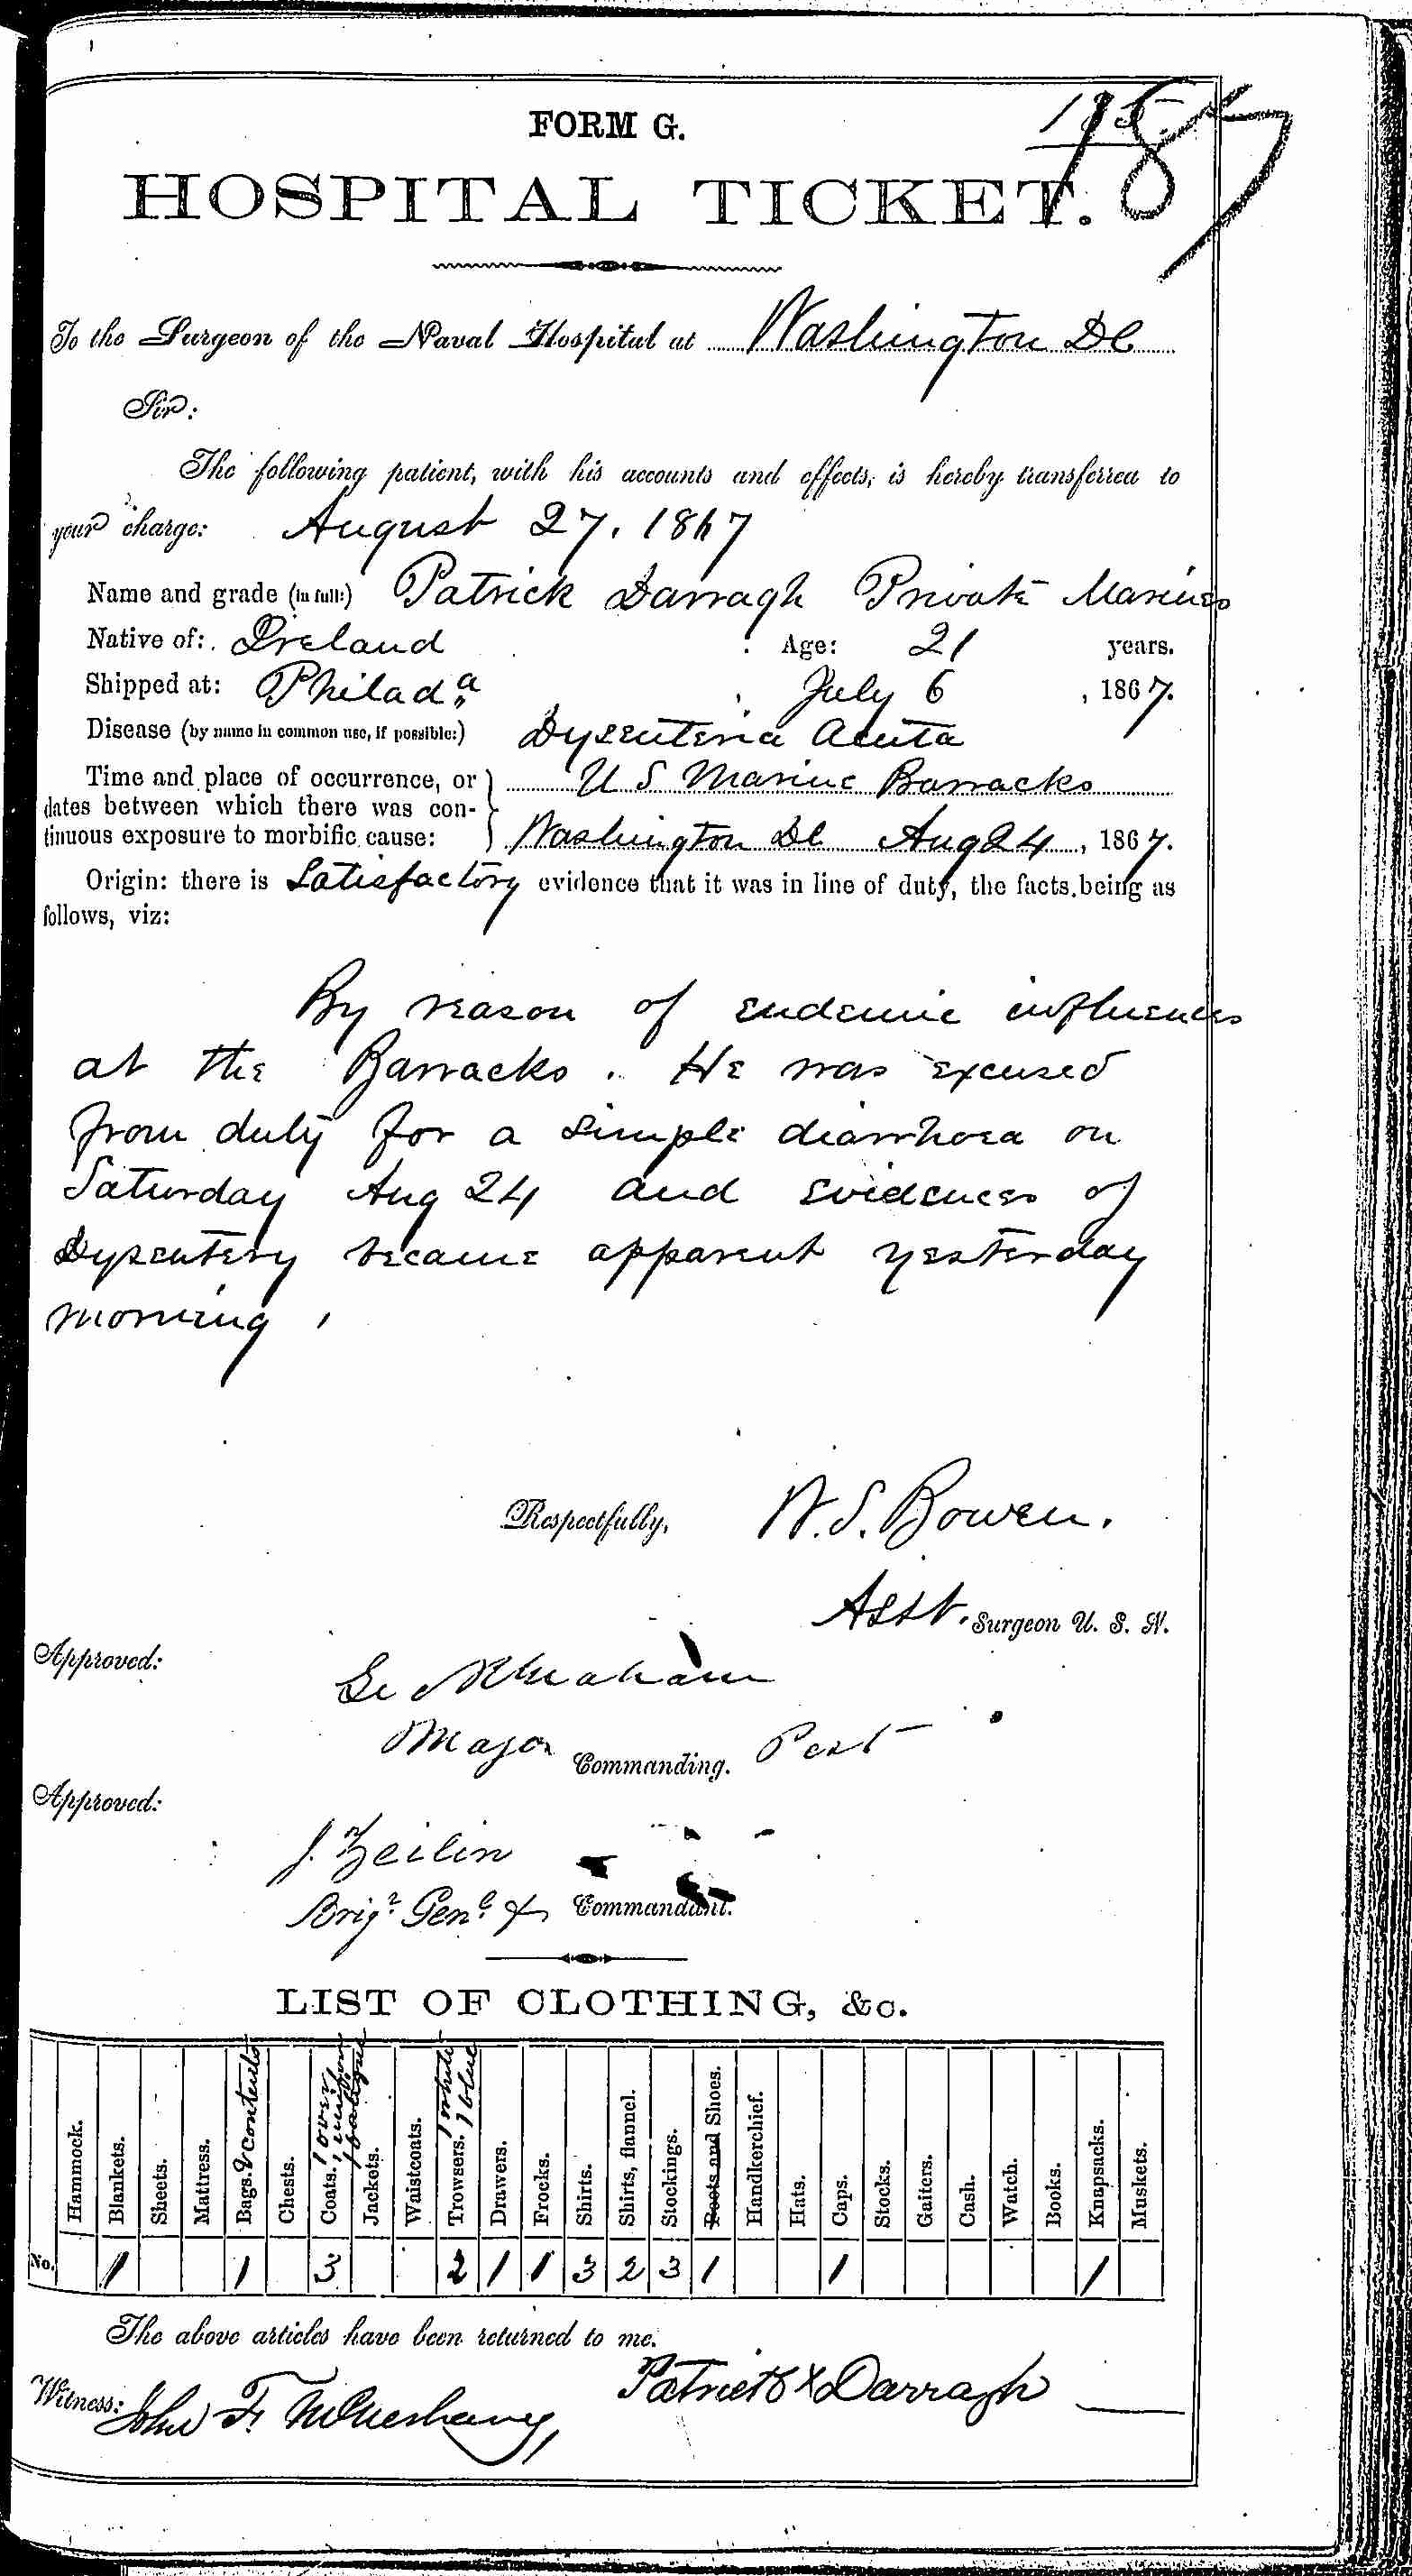 FORM G.
187
HOSPITAL TICKET.
To the Surgeon of the Naval Hospital at Washington DC
Sir:
The following patient, with his accounts and effects, is hereby transferred to
your charge: August 27, 1867
Name and grade (in full:) Patrick Darragh Private Marines
Native of: Ireland Age: 21 years.
Shipped at: Philada July 6, 1867.
Disease (by name in common use, if possible:) Dysenteria Acuta
Time and place of occurrence, or U S Marine Barracks
dates between which there was con-
tinuous exposure to morbific cause: Washington DC Aug 24, 1867.
Origin: there is Satisfactory evidence that it was in line of duty, the facts being as
follows, viz:
By reason of endemic influences
at the Barracks. He was excused
from duty for a simple diarrhoea on
Saturday Aug 24 and evidences of
Dysentery became apparent yesterday
morning,
Respectfully, W. S. Bowen.
Asst. Surgeon U. S. N.
Approved:
Major Commanding. Post
Approved:
J. Zeilin
Brigr. Genl. & Commandant.
LIST OF CLOTHING, &c.
Hammock. Blankets. Sheets. Mattress. Bags. & Contents Chests. Coats. 1 over 1 uniform 1 fatigue Jackets. Waistcoats. Trowsers. 1 white 1 blue Drawers. Frocks. Shirts. Shirts, flannel. Stockings. Boots and Shoes. Handkerchief. Hats. Caps. Stocks. Gaiters. Cash. Watch. Books. Knapsacks. Muskets.
No. 1 1 3 2 1 1 3 2 3 1 1 1
The above articles have been returned to me.
Patrick X Darragh
Witness: John F.